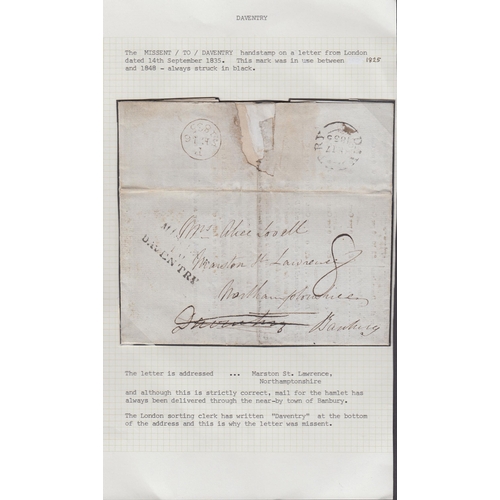 DAVENTRY
The MISSENT / TO / DAVENTRY handstamp on a letter from London
dated 14th September 1835. This mark was in use between 1825
and 1848 - always struck in black.
Mrs Alice Lovell
Marston St. Lawrence
DAVENTRY
Northamptonshire
8
Daventry Banbury
The letter is addressed ... Marston St. Lawrence,
Northamptonshire
and although this is strictly correct, mail for the hamlet has
always been delivered through the near-by town of Banbury.
The London sorting clerk has written "Daventry" at the bottom
of the address and this is why the letter was missent.